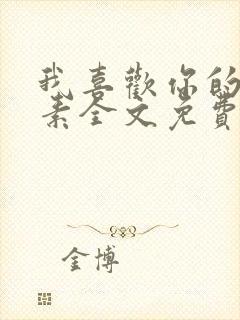 我喜歡你的
素全文免費
金博